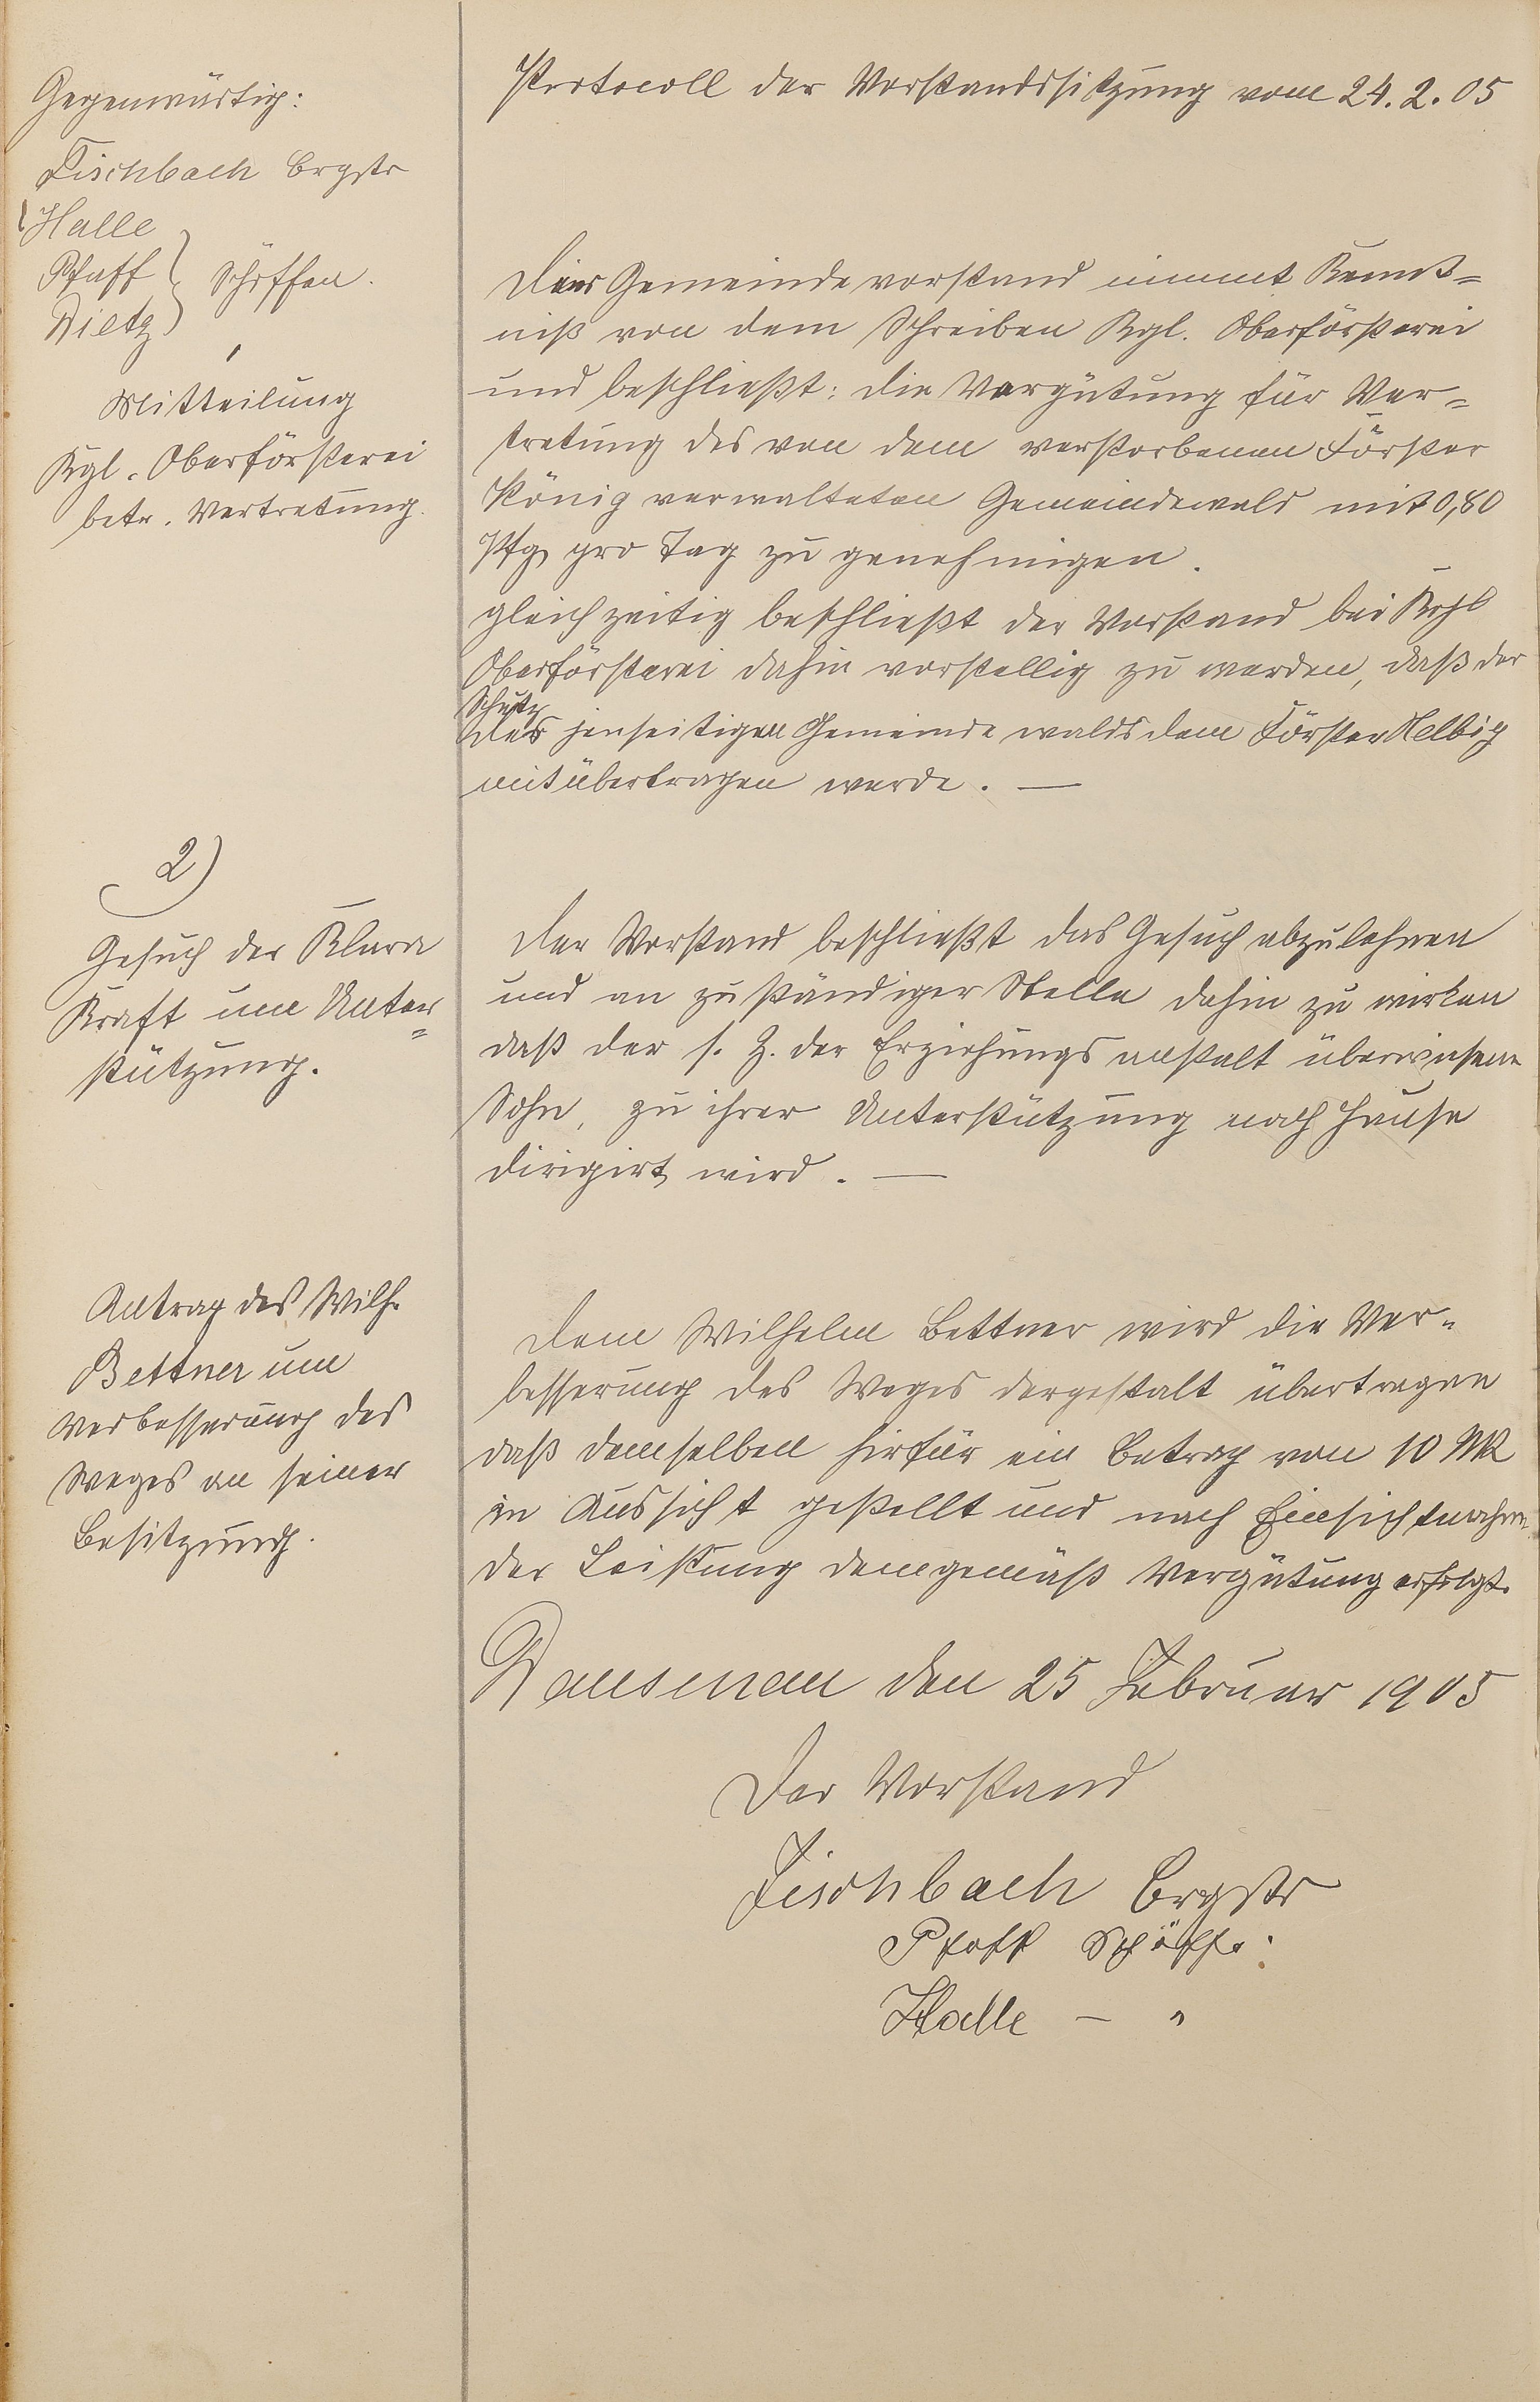 Protocoll der Vorstandssitzung vom 24.2.05
Gegenwärtig:
Fischbach Brgstr
Halle
Pfaff } Schöffen.
Dietz
Mitteilung
Kgl. Oberförsterei
betr. Vertretung.
Der Gemeindevorstand nimmt Kennt=
niß von dem Schreiben Kgl. Oberförsterei
und beschließt: die Vergütung für Ver=
tretung des von dem verstorbenen Förster
König verwalteten Gemeindewald mit 0,80
Pfg pro Tag zu genehmigen.
gleichzeitig beschließt der Vorstand bei Kgl
Oberförsterei dahin vorstellig zu werden, daß der
Schutz
des jenseitigen Gemeindewalds dem Förster Helbig
mitübertragen werde. —
2)
Gesuch der Klara
Kraft um Unter=
stützung.
Der Vorstand beschließt das Gesuch abzulehnen
und an zuständiger Stelle dahin zu wirken
daß der s. Z. der Erziehungsanstalt überwiesene
Sohn, zu ihrer Unterstützung nach Hause
dirigirt wird. —
Antrag des Wilh.
Bettner um
Verbesserung des
Weges an seiner
Besitzung.
Dem Wilhelm Bettner wird die Ver=
besserung des Weges dergestalt übertragen
daß demselben hierfür ein Betrag von 10 Mk
in Aussicht gestellt und nach Einsichtnahme
der Leistung demgemäß Vergütung erfolgt.
Dausenau den 25 Februar 1905
Der Vorstand
Fischbach Brgstr
Pfaff Schöffe.
Halle — "